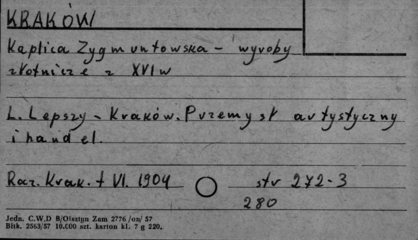 KRAKÓW
Kaplica Zygmuntowska - wyroby
złotnicze z XVI w
L. Lepszy - Kraków. Przemysł artystyczny
i handel.
Roz. Krak. t VI. 1904 str 272-3
280
Jedn. C.W.D B/Olsztyn Zam 2776 /on/ 57
Bltk. 2563/57 10.000 szt. karton kl. 7 g 220.